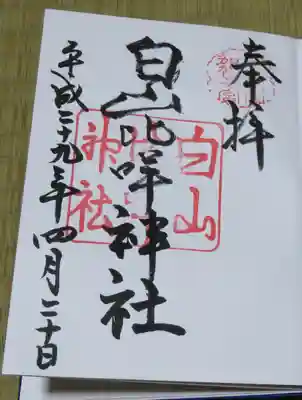 奉拝
白山比咩神社
平成二十九年四月二十日
白山
神社